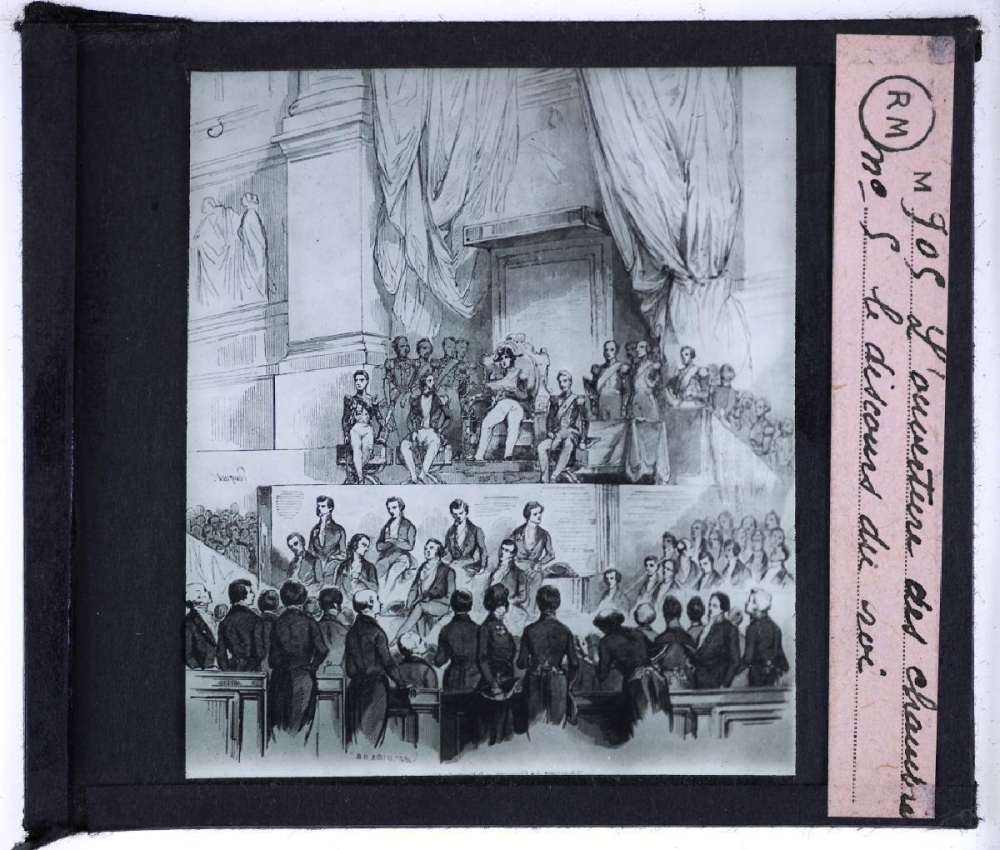 RM
M 705 L'ouverture des chambres
no 5 le discours du roi